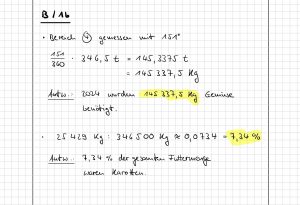 B / 16
• Bereich ④ gemessen mit 151°
151/360 · 346,5 t = 145,3375 t
= 145 337,5 kg
Antw.: 2024 wurden 145 337,5 kg Gemüse
benötigt.
• 25 429 kg : 346 500 kg ≈ 0,0734 = 7,34 %
Antw.: 7,34 % der gesamten Futtermenge
waren Karotten.